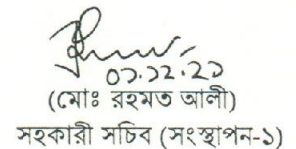 ০১.১২.২১
(মোঃ রহমত আলী)
সহকারী সচিব (সংস্থাপন-১)